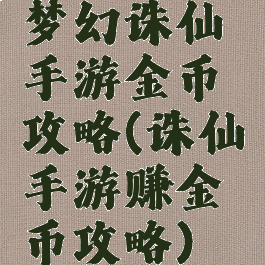 梦幻诛仙
手游金币
攻略(诛仙
手游赚金
币攻略)